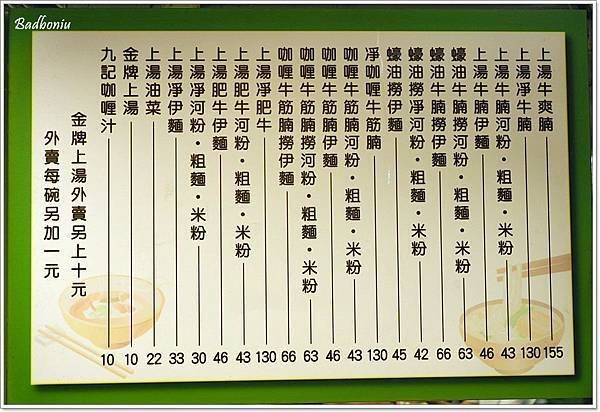 Badboniu
上湯牛爽腩 155
上湯凈牛腩 130
上湯牛腩河粉・粗麵・米粉 43
上湯牛腩伊麵 46
蠔油牛腩撈河粉・粗麵・米粉 63
蠔油牛腩撈伊麵 66
蠔油撈凈河粉・粗麵・米粉 42
蠔油撈伊麵 45
凈咖喱牛筋腩 130
咖喱牛筋腩河粉・粗麵・米粉 43
咖喱牛筋腩伊麵 46
咖喱牛筋腩撈河粉・粗麵・米粉 63
咖喱牛筋腩撈伊麵 66
上湯凈肥牛 130
上湯肥牛河粉・粗麵・米粉 43
上湯肥牛伊麵 46
上湯凈河粉・粗麵・米粉 30
上湯凈伊麵 33
上湯油菜 22
金牌上湯 10
九記咖喱汁 10
金牌上湯外賣另上十元
外賣每碗另加一元